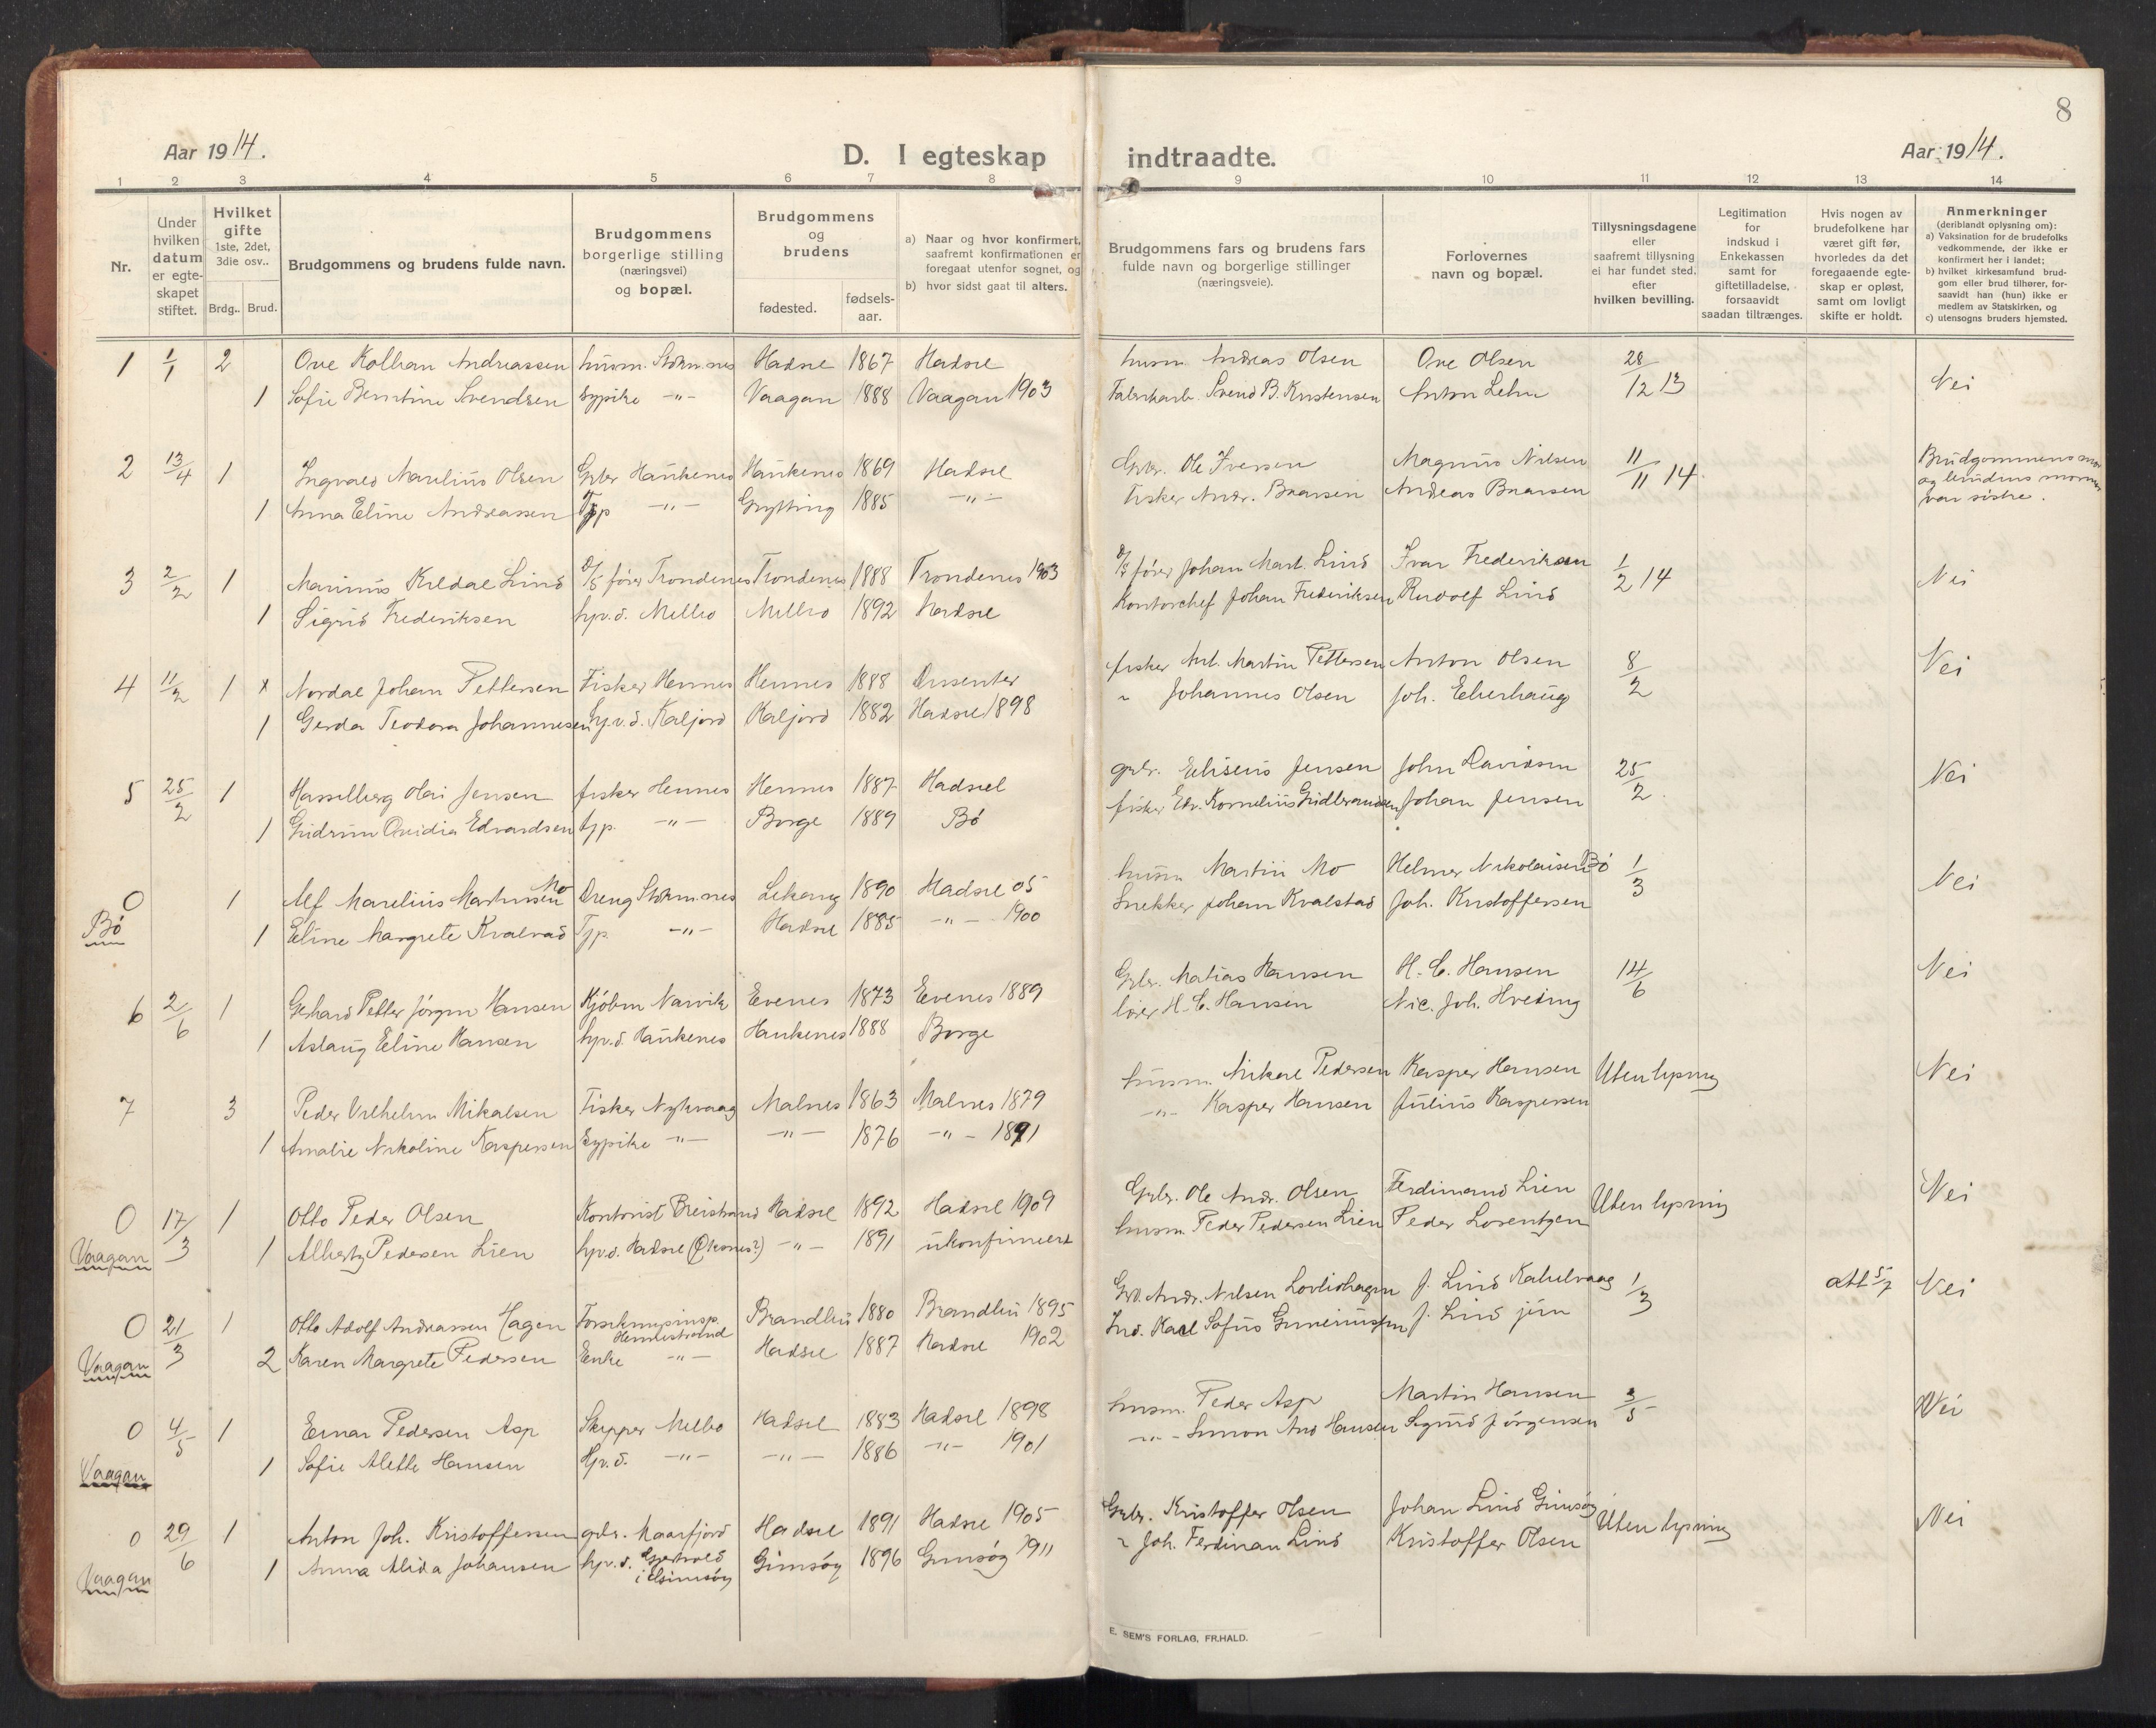 8
Aar 1914.
D. I egteskap indtraadte.
Aar 1914.
1 2 3 4 5 6 7 8 9 10 11 12 13 14
Nr.
Under hvilken datum er egteskapet stiftet.
Hvilket gifte 1ste, 2det, 3die osv..
Brdg.. Brud.
Brudgommens og brudens fulde navn.
Brudgommens borgerlige stilling (næringsvei) og bopæl.
Brudgommens og brudens
fødested. fødsels-aar.
a) Naar og hvor konfirmert, saafremt konfirmationen er foregaat utenfor sognet, og
b) hvor sidst gaat til alters.
Brudgommens fars og brudens fars fulde navn og borgerlige stillinger (næringsveie).
Forlovernes navn og bopæl.
Tillysningsdagene eller saafremt tillysning ei har fundet sted, efter hvilken bevilling.
Legitimation for indskud i Enkekassen samt for giftetilladelse, forsaavidt saadan tiltrænges.
Hvis nogen av brudefolkene har været gift før, hvorledes da det foregaaende egteskap er opløst, samt om lovligt skifte er holdt.
Anmerkninger (deriblandt oplysning om):
a) Vaksination for de brudefolks vedkommende, der ikke er konfirmert her i landet;
b) hvilket kirkesamfund brudgom eller brud tilhører, forsaavidt han (hun) ikke er medlem av Statskirken, og
c) utensogns bruders hjemsted.
1 1/1 2 Ove Kolban Andreassen husm. Stokm.nes Hadsel 1867 Hadsel husm. Andreas Olsen Ove Olsen 28/12 13 Nei
1 Sofie Berntine Svendsen sypike -"- Vaagan 1888 Vaagan 1903 Svend B. Kristensen Anton Lehn
2 13/4 1 Ingvald Marelius Olsen Gbr Haukenes Haukenes 1869 Hadsel Gbr. Ole Iversen Magnus Nilsen 11/11 14 Brudgommens mor
1 Anna Eline Andreassen Tjp -"- Grytting 1885 -"- Fisker Andr. Baarsen Andreas Baarsen og brudens mormor
var søstre.
3 2/2 1 Marinus Kildal Lind D/S fører Trondenes Trondenes 1888 Trondenes 1903 D/S fører Johan Mart. Lind Ivar Frederiksen 1/2 14 Nei
1 Sigrid Frederiksen hpv.d. Melbo Melbo 1892 Hadsel Kontorchef Johan Frederiksen Rudolf Lind
4 11/2 1 x Nordal Johan Pettersen Fisker Hennes Hennes 1888 Dissenter fisker Ant. Martin Pettersen Anton Olsen 8/2 Nei
1 Gerda Teodora Johannesen hp.v.d. Kaljord Kaljord 1882 Hadsel 1898 " Johannes Olsen Joh. Ellerhaug
5 25/2 1 Hasselberg Olai Jensen fisker Hennes Hennes 1887 Hadsel gbr. Eliseus Jensen John Davidsen 25/2. Nei
1 Gudrun Ovidia Edvardsen tjp. -"- Borge 1889 Bø fisker Edv. Kornelius Gudbrandsen Johan Jensen
0 1 Alf Marelius Martinsen Mo Dreng Stokm.nes 1890 Hadsel 05 husm Martin Mo Helmer Nikolaisen Bø 1/3 Nei
Bø 1 Eline Margrete Kvalstad Tjp. -"- Hadsel 1885 -"- 1900 Snekker Johan Kvalstad Joh. Kristoffersen
6 2/6 1 Gerhard Petter Jørgen Hansen Kjøbm Narvik Evenes 1873 Evenes 1889 Gbr. Matias Hansen H. C. Hansen 14/6 Nei
1 Aslaug Eline Hansen hpv.d Haukenes Haukenes 1888 Borge lærer H. C. Hansen Nic. Joh. Hveding
7 3 Peder Vilhelm Mikalsen Fisker Nykvaag Malnes 1863 Malnes 1879 husm. Mikal Pedersen Kasper Hansen Uten lysning Nei
1 Amalie Nikoline Kaspersen Sypike -"- -"- 1876 -"- 1891 -"- Kasper Hansen Julius Kaspersen
0 17/3 1 Otto Peder Olsen Kontorist Breistrand Hadsel 1892 Hadsel 1909 Gbr. Ole Andr. Olsen Ferdinand Lien Uten lysning Nei
Vaagan 1 Pedersen Lien hpv.d. Hadsel (Øksnes?) -"- 1891 ukonfirmert husm. Peder Pedersen Lien Peder Lorentzen
0 21/3 1 Otto Adolf Andreassen Hagen Forsikringsinsp. Hennestrand Brandbu 1880 Brandbu 1895 Andr. Nilsen Lovlidhagen J. Lind Kabelvaag 1/3 att 5/7 Nei
Vaagan 2 Karen Margrete Pedersen Enke -"- Hadsel 1887 Hadsel 1902 Ind. Karl Sofus Guneriussen J. Lind jun
0 4/5 1 Einar Pedersen Asp Skipper Melbo Hadsel 1883 Hadsel 1898 husm. Peder Asp Martin Hansen 3/5 Nei
Vaagan 1 Sofie Alette Hansen Hpv.d. -"- -"- 1886 -"- 1901 -"- Simon And Hansen Sigurd Jørgensen
0 29/6 1 Anton Joh. Kristoffersen gbr. Maarfjord Hadsel 1891 Hadsel 1905 Gbr. Kristoffer Olsen Johan Lind Gimsøy Uten lysning Nei
Vaagan 1 Anna Alida Johansen hpv.d. i Gimsøy Gimsøy 1896 Gimsøy 1911 " Joh. Ferdinan Lind Kristoffer Olsen
E. SEM'S FORLAG, FR.HALD.